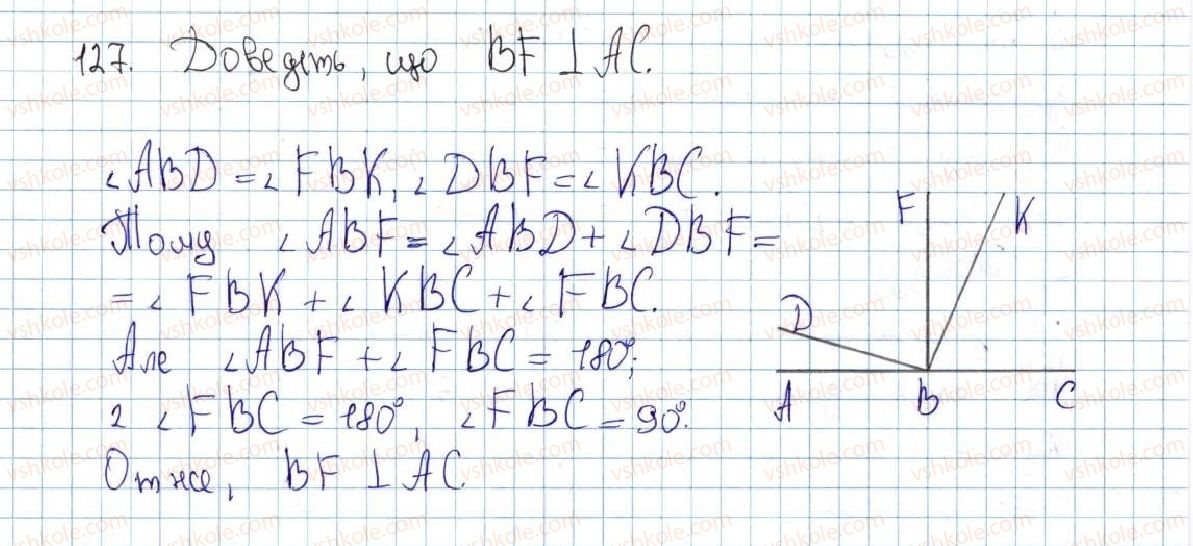 127. Доведіть, що BF ⊥ AC.
∠ABD = ∠FBK, ∠DBF = ∠KBC.
Тому ∠ABF = ∠ABD + ∠DBF =
= ∠FBK + ∠KBC + ∠FBC.
Але ∠ABF + ∠FBC = 180°;
2 ∠FBC = 180°, ∠FBC = 90°.
Отже, BF ⊥ AC.
F
K
D
A B C
vshkole.com